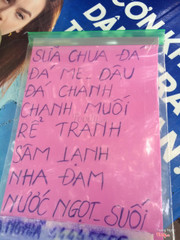 CÓ KÝ
DÂ
TRA
SỮA CHUA ĐÁ
ĐÁ ME - DÂU
ĐÁ CHANH
CHANH MUỐI
RỄ TRANH
SÂM LẠNH
NHA ĐAM
NƯỚC NGỌT - SUỐI